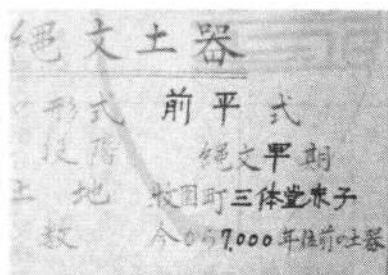 縄文土器
形式 前平式
段階 縄文早期
土地 牧園町三体堂赤子
数 今から7,000年位前の土器